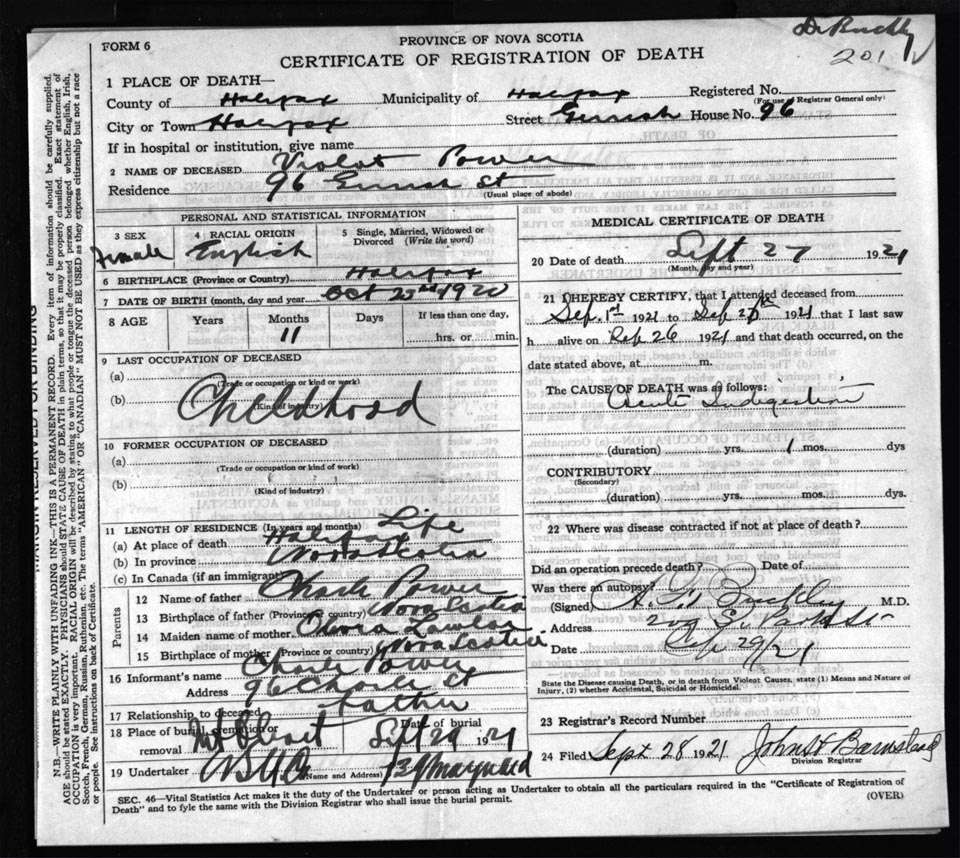 Dr Buckley
201
PROVINCE OF NOVA SCOTIA
FORM 6
CERTIFICATE OF REGISTRATION OF DEATH
1 PLACE OF DEATH—
Registered No.
(For use of Registrar General only)
County of Halifax Municipality of Halifax
City or Town Halifax Street House No. 96
If in hospital or institution, give name
2 NAME OF DECEASED Violet Power
Residence 96 St
(Usual place of abode)
PERSONAL AND STATISTICAL INFORMATION
3 SEX Female
4 RACIAL ORIGIN English
5 Single, Married, Widowed or Divorced (Write the word)
6 BIRTHPLACE (Province or Country) Halifax
7 DATE OF BIRTH (month, day and year) Oct 23rd 1920
8 AGE Years Months 11 Days If less than one day, hrs. or min.
9 LAST OCCUPATION OF DECEASED
(a)
(Trade or occupation or kind or work)
(b) Childhood
(Kind of industry)
10 FORMER OCCUPATION OF DECEASED
(a)
(Trade or occupation or kind of work)
(b)
(Kind of industry)
11 LENGTH OF RESIDENCE (In years and months) Life
(a) At place of death Halifax
(b) In province Nova Scotia
(c) In Canada (if an immigrant)
Parents
12 Name of father Charle Power
13 Birthplace of father (Province or country) Nova Scotia
14 Maiden name of mother Lawlor
15 Birthplace of mother (Province or country) Nova Scotia
16 Informant's name Charle Power
Address 96 St
17 Relationship to deceased Father
18 Place of burial, cremation or removal Mt Olivet Date of burial Sept 29 1921
19 Undertaker (Name and Address) Maynard
MEDICAL CERTIFICATE OF DEATH
20 Date of death Sept 27 1921
(Month, day and year)
21 I HEREBY CERTIFY, that I attended deceased from
Sep. 1st 1921 to Sep 1921 that I last saw
h alive on Sep 26 1921 and that death occurred, on the
date stated above, at m.
The CAUSE OF DEATH was as follows:
Acute Indigestion
(duration) yrs. 1 mos. dys
CONTRIBUTORY
(Secondary)
(duration) yrs. mos. dys.
22 Where was disease contracted if not at place of death?
Did an operation precede death? Date of
Was there an autopsy?
(Signed) Buckley M.D.
Address
Date 29/21
State the Disease causing Death, or in death from Violent Causes, state (1) Means and Nature of
Injury, (2) whether Accidental, Suicidal or Homicidal.
23 Registrar's Record Number
24 Filed Sept 28 1921
Division Registrar
SEC. 46—Vital Statistics Act makes it the duty of the Undertaker or person acting as Undertaker to obtain all the particulars required in the "Certificate of Registration of
Death" and to fyle the same with the Division Registrar who shall issue the burial permit.
(OVER)
MARGIN RESERVED FOR BINDING
N.B.—WRITE PLAINLY WITH UNFADING INK—THIS IS A PERMANENT RECORD. Every item of information should be carefully supplied.
AGE should be stated EXACTLY. PHYSICIANS should STATE CAUSE OF DEATH in plain terms, so that it may be properly classified. Exact statement of
OCCUPATION is very important. RACIAL ORIGIN will be described by stating to what people or tongue the deceased person belonged whether English, Irish,
Scotch, French, German, Russian, Ruthenian, etc. The terms "AMERICAN" OR "CANADIAN" MUST NOT BE USED as they express citizenship but not a race
or people. See instructions on back of Certificate.